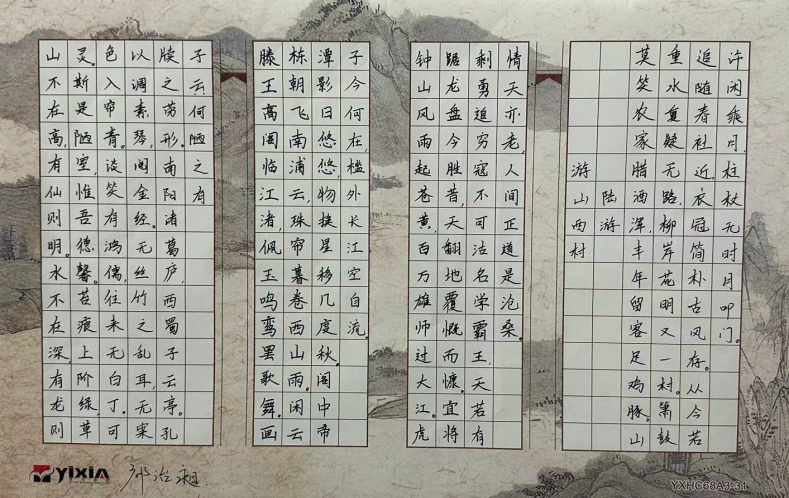 山不在高,有仙则明。水不在深有龙则
灵。斯是陋室,惟吾德馨。苔痕上阶绿草
色入帘青。谈笑有鸿儒,往来无白丁。可
以调素琴,阅金经。无丝竹之乱耳。无案
牍之劳形。南阳诸葛庐,西蜀子云亭。孔
子云何陋之有
滕王高阁临江渚,佩玉鸣鸾罢歌舞。画
栋朝飞南浦云,珠帘暮卷西山雨。闲云
潭影日悠悠,物换星移几度秋。阁中帝
子今何在,槛外长江空自流。
钟山风雨起苍黄,百万雄师过大江。虎
踞龙盘今胜昔,天翻地覆慨而慷。宜将
剩勇追穷寇,不可沽名学霸王,天若有
情天亦老,人间正道是沧桑。
游山西村
陆游
莫笑农家腊酒浑,丰年留客足鸡豚。山
重水复疑无路,柳岸花明又一村。箫鼓
追随春社近,衣冠简朴古风存。从今若
许闲乘月,拄杖无时月叩门。
yixin
YXHC68A3-31